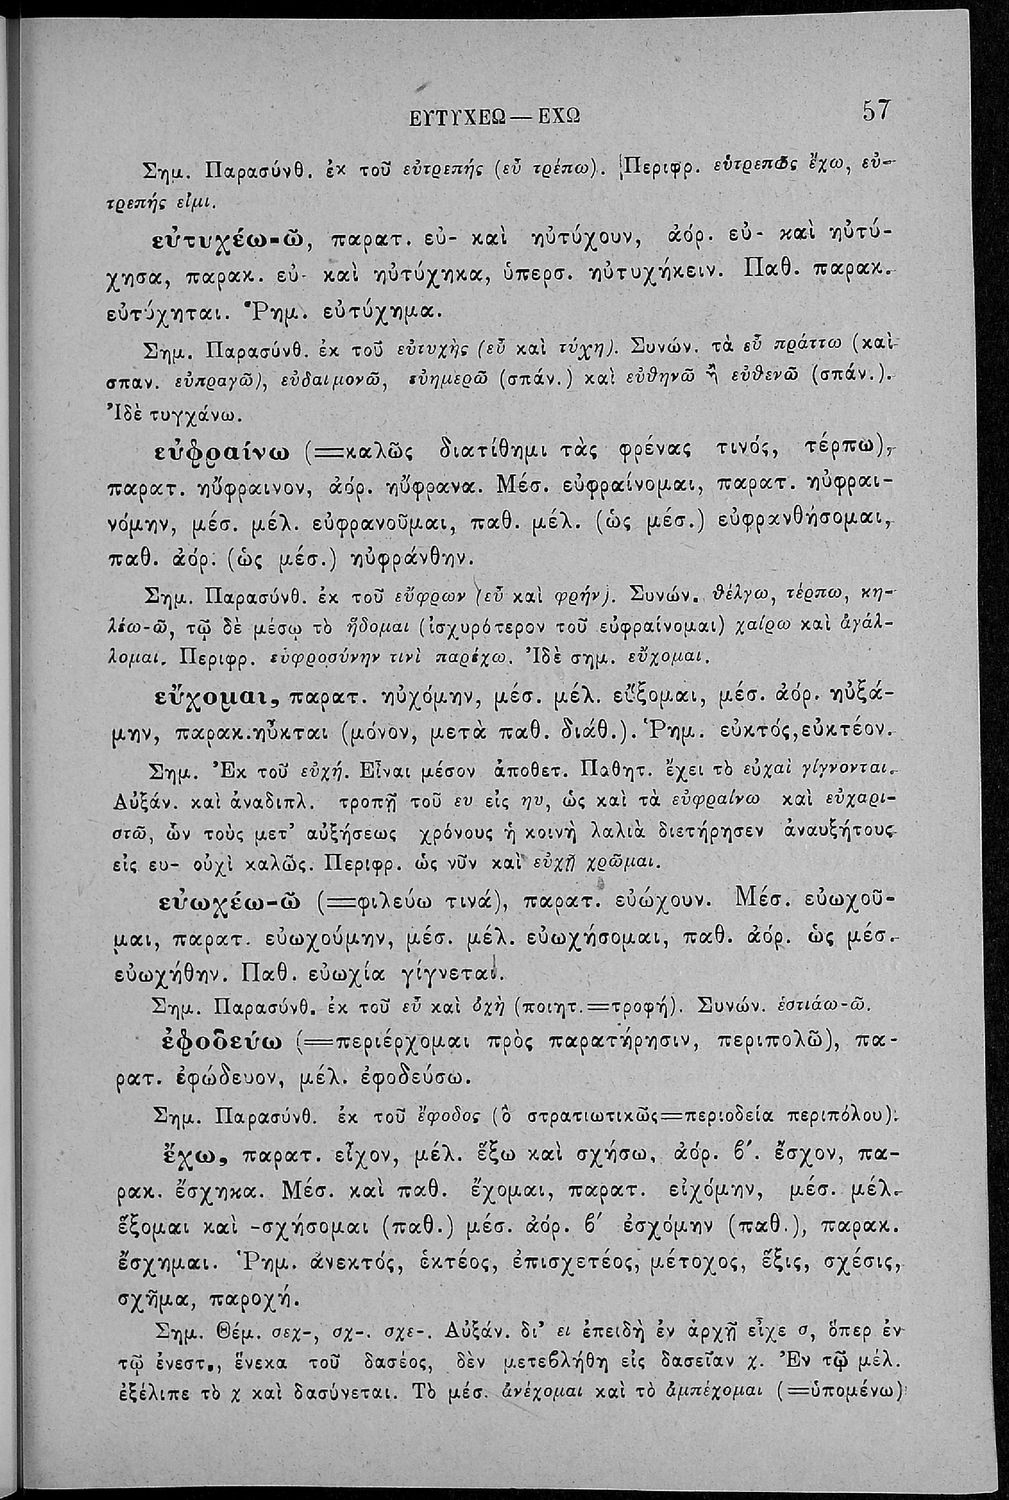 ΕΥΤΥΧΕΩ — ΕΧΩ 57
Σημ. Παρασύνθ. ἐκ τοῦ εὐτρεπής (εὖ τρέπω). Περιφρ. εὐτρεπῶς ἔχω, εὐ-
τρεπής εἰμι.
εὐτυχέω-ῶ, παρατ. εὐ- καὶ ηὐτύχουν, ἀόρ. εὐ- καὶ ηὐτύ-
χησα, παρακ. εὐ- καὶ ηὐτύχηκα, ὑπερσ. ηὐτυχήκειν. Παθ. παρακ.
εὐτύχηται. Ῥημ. εὐτύχημα.
Σημ. Παρασύνθ. ἐκ τοῦ εὐτυχὴς (εὖ καὶ τύχη). Συνών. τὰ εὖ πράττω (καὶ
σπαν. εὐπραγῶ), εὐδαιμονῶ, εὐημερῶ (σπάν.) καὶ εὐθηνῶ ἢ εὐθενῶ (σπάν.).
Ἰδὲ τυγχάνω.
εὐφραίνω (=καλῶς διατίθημι τὰς φρένας τινός, τέρπω),
παρατ. ηὔφραινον, ἀόρ. ηὔφρανα. Μέσ. εὐφραίνομαι, παρατ. ηὐφραι-
νόμην, μέσ. μέλ. εὐφρανοῦμαι, παθ. μέλ. (ὡς μέσ.) εὐφρανθήσομαι,
παθ. ἀόρ. (ὡς μέσ.) ηὐφράνθην.
Σημ. Παρασύνθ. ἐκ τοῦ εὔφρων (εὖ καὶ φρήν). Συνών. θέλγω, τέρπω, κη-
λέω-ῶ, τῷ δὲ μέσῳ τὸ ἥδομαι (ἰσχυρότερον τοῦ εὐφραίνομαι) χαίρω καὶ ἀγάλ-
λομαι. Περιφρ. εὐφροσύνην τινὶ παρέχω. Ἰδὲ σημ. εὔχομαι.
εὔχομαι, παρατ. ηὐχόμην, μέσ. μέλ. εὔξομαι, μέσ. ἀόρ. ηὐξά-
μην, παρακ. ηὖκται (μόνον, μετὰ παθ. διάθ.). Ῥημ. εὐκτός, εὐκτέον.
Σημ. Ἐκ τοῦ εὐχή. Εἶναι μέσον ἀποθετ. Παθητ. ἔχει τὸ εὐχαὶ γίγνονται.
Αὐξάν. καὶ ἀναδιπλ. τροπῇ τοῦ ευ εἰς ηυ, ὡς καὶ τὰ εὐφραίνω καὶ εὐχαρι-
στῶ, ὧν τοὺς μετ' αὐξήσεως χρόνους ἡ κοινὴ λαλιὰ διετήρησεν ἀναυξήτους
εἰς ευ- οὐχὶ καλῶς. Περιφρ. ὡς νῦν καὶ εὐχῇ χρῶμαι.
εὐωχέω-ῶ (=φιλεύω τινά), παρατ. εὐώχουν. Μέσ. εὐωχοῦ-
μαι, παρατ. εὐωχούμην, μέσ. μέλ. εὐωχήσομαι, παθ. ἀόρ. ὡς μέσ.
εὐωχήθην. Παθ. εὐωχία γίγνεται.
Σημ. Παρασύνθ. ἐκ τοῦ εὖ καὶ ὀχὴ (ποιητ.=τροφή). Συνών. ἑστιάω-ῶ.
ἐφοδεύω (=περιέρχομαι πρὸς παρατήρησιν, περιπολῶ), πα-
ρατ. ἐφώδευον, μέλ. ἐφοδεύσω.
Σημ. Παρασύνθ. ἐκ τοῦ ἔφοδος (ὁ στρατιωτικῶς=περιοδεία περιπόλου).
ἔχω, παρατ. εἶχον, μέλ. ἕξω καὶ σχήσω, ἀόρ. β′. ἔσχον, πα-
ρακ. ἔσχηκα. Μέσ. καὶ παθ. ἔχομαι, παρατ. εἰχόμην, μέσ. μέλ.
ἕξομαι καὶ -σχήσομαι (παθ.) μέσ. ἀόρ. β′ ἐσχόμην (παθ.), παρακ.
ἔσχημαι. Ῥημ. ἀνεκτός, ἑκτέος, ἐπισχετέος, μέτοχος, ἕξις, σχέσις,
σχῆμα, παροχή.
Σημ. Θέμ. σεχ-, σχ-. σχε-. Αὐξάν. δι' ει ἐπειδὴ ἐν ἀρχῇ εἶχε σ, ὅπερ ἐν
τῷ ἐνεστ., ἕνεκα τοῦ δασέος, δὲν μετεβλήθη εἰς δασεῖαν χ. Ἐν τῷ μέλ.
ἐξέλιπε τὸ χ καὶ δασύνεται. Τὸ μέσ. ἀνέχομαι καὶ τὸ ἀμπέχομαι (=ὑπομένω)